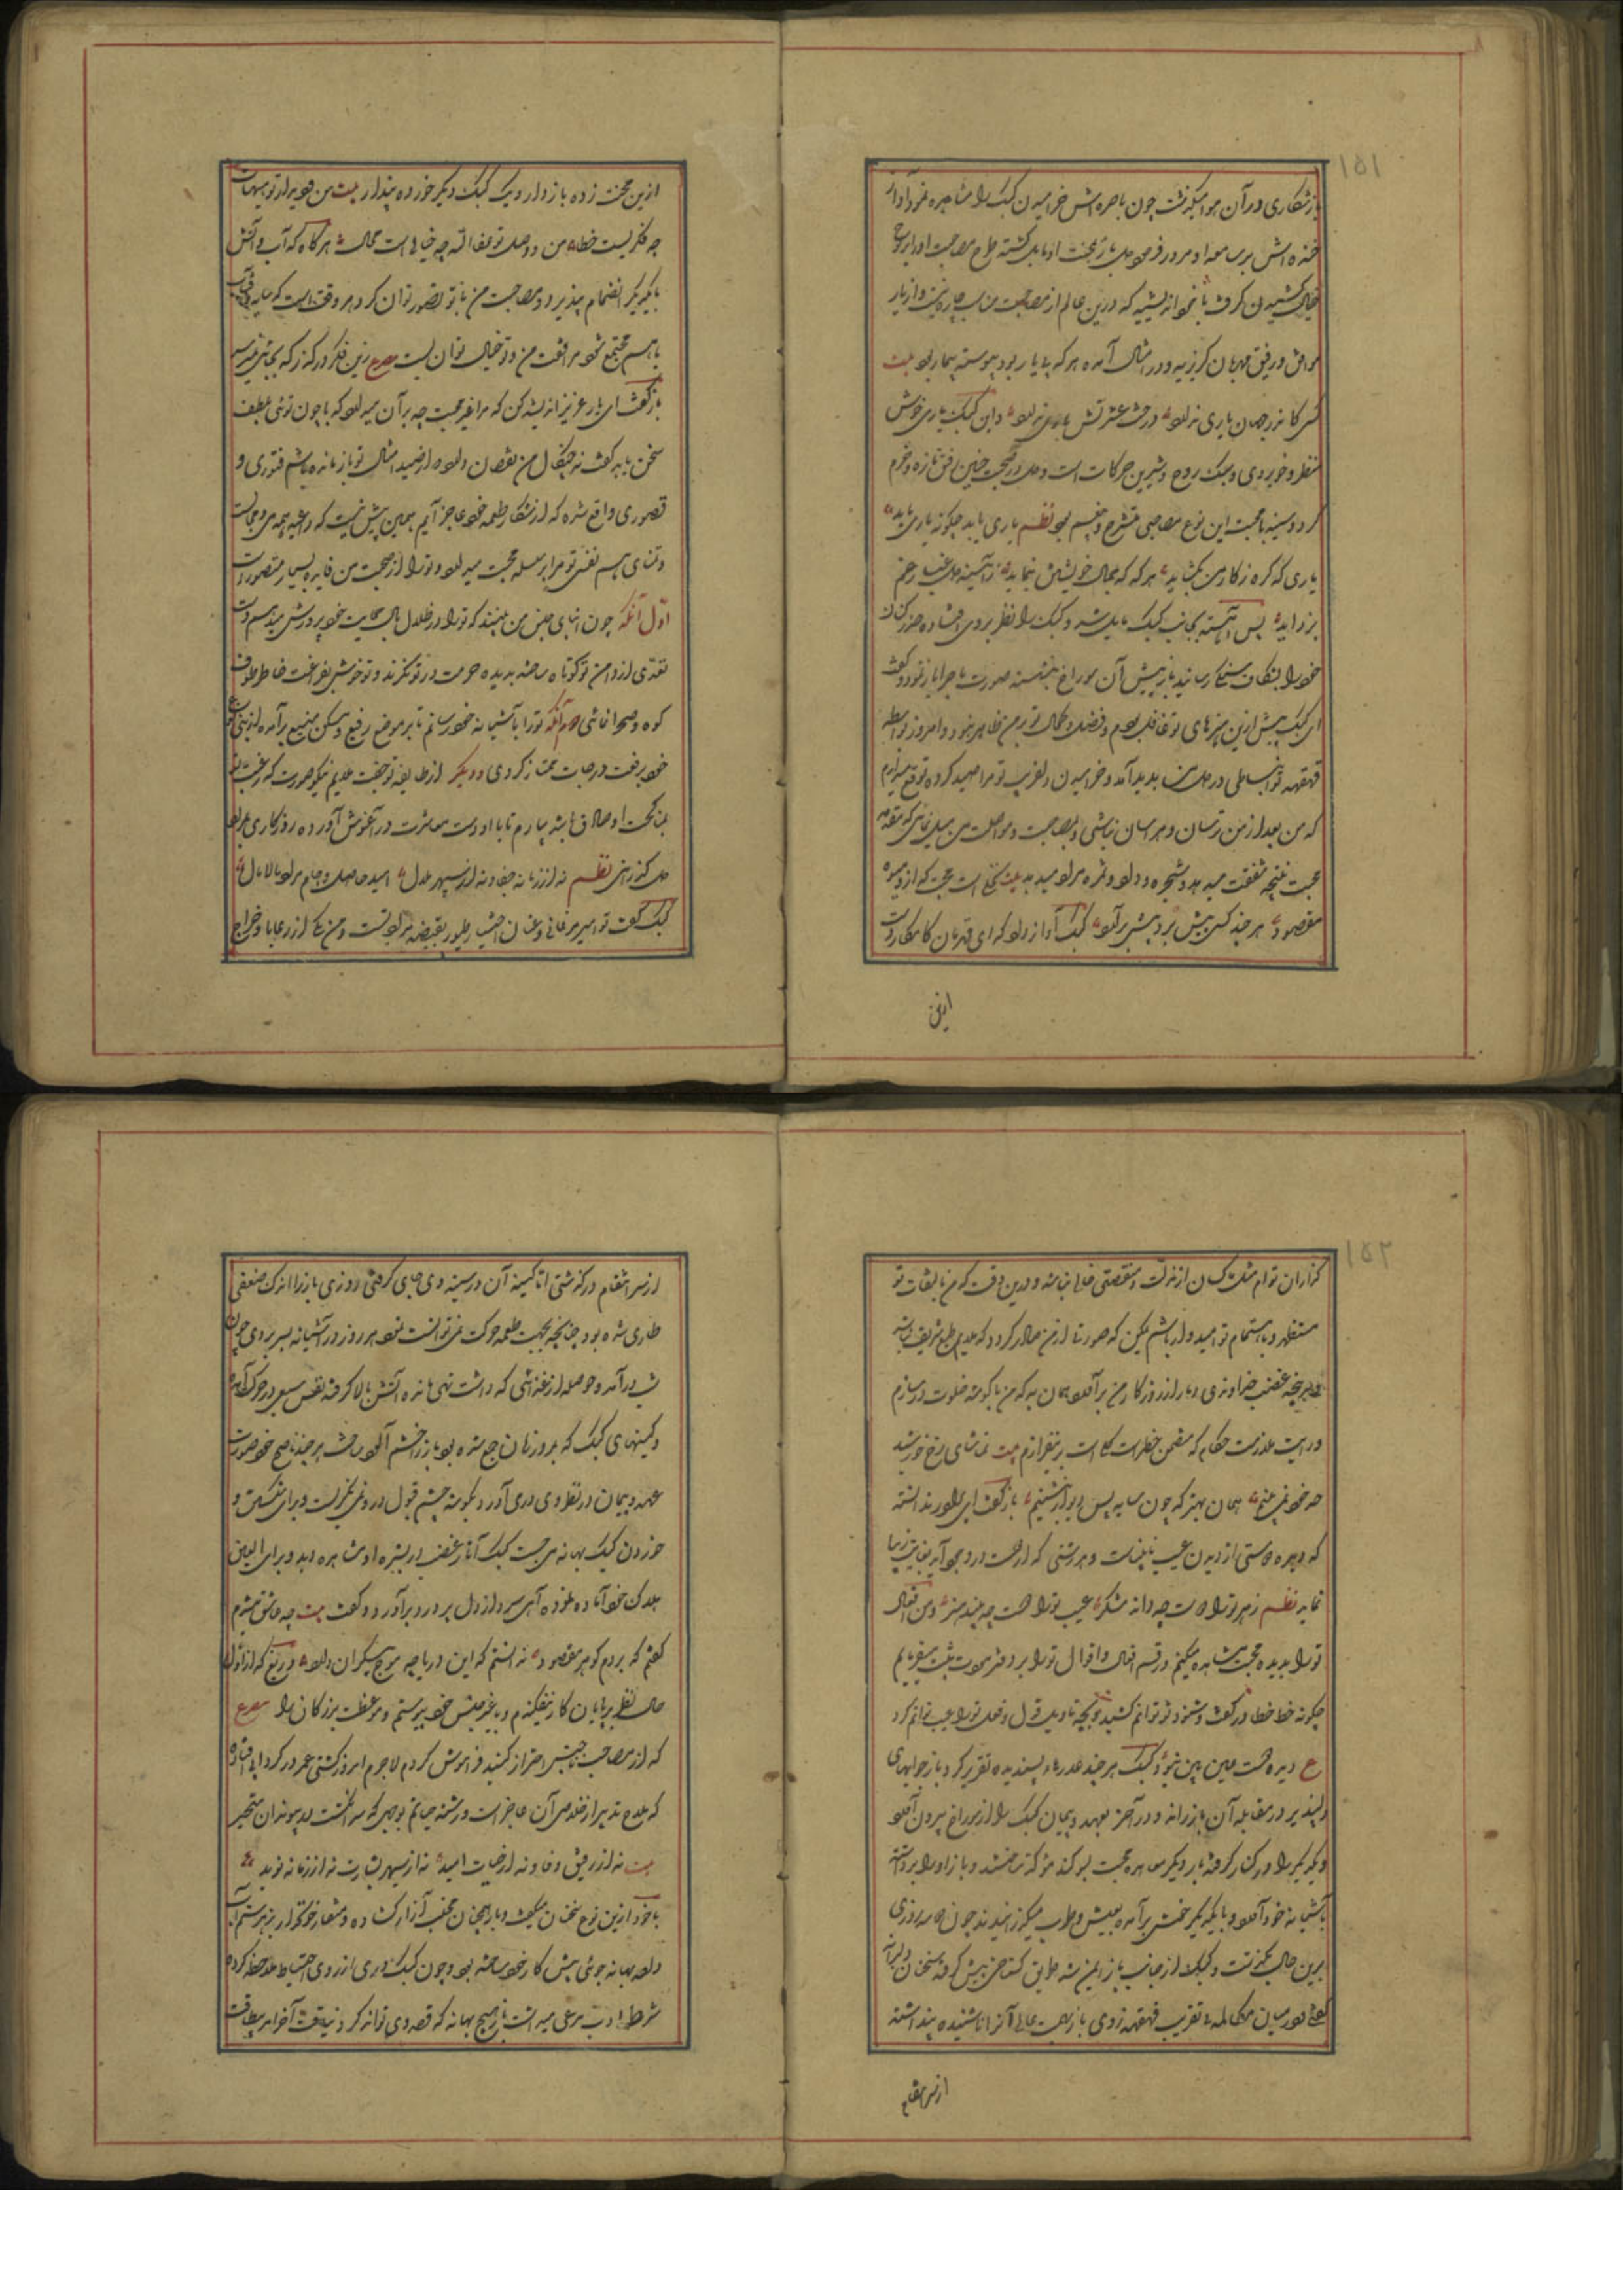 ۱۵۱
باز شکاری در آن هوا میگذشت چون باصره اش خرامیدن کبک را مشاهده نمود و آواز
خنده اش بر سامعه او مرور فرمود
خیال کشیدن گرفت با خود اندیشید که درین عالم از مصاحبت مناسب چاره نیست و از یار
موافق و رفیق مهربان گریز نه و در امثال آمده هر که بی یار بود پیوسته بیمار بود بیت
کسی کاندر جهان یاری ندارد درخت عشرتش باری ندارد و این کبک یاری خوش
منظر و خوبروی و سبک روح و شیرین حرکات است و دل در صحبت چنین رفیق تازه و خرم
گردد و سینه با صحبت این نوع مصاحبی منشرح و بی غم بود نظم یاری باید چگونه یاری باید
یاری که گره ز کار من بگشاید هر گه که جمال خویشتن بنماید ز آئینه دل غبار غم
بزداید پس آهسته بجانب کبک مایل شد و کبک را نظر بر وی افتاد حذر کنان
خود را بشکاف سنگی رسانید باز پیش آن سوراخ بنشسته صورت ماجرا باز نمود و گفت
ای کبک پیش ازین از هنرهای تو غافل بودم و فضل و کمال تو بر من ظاهر نبود و امروز بواسطه
قهقهه تو انبساطی در دل من پدید آمد و خرامیدن دلفریب تو مرا صید کرد توقع میدارم
که من بعد از من ترسان و هراسان نباشی و بمصاحبت و مواصلت من میل نمائی که مقدمه
محبت نتیجه شفقت میدهد و شجره وداد ثمره مراد میدهد بیت نخلی است محبت که از و میوه
مقصود هر چند کسی بیش برد بیش برآید کبک آواز داد که ای قهرمان کامکار دست
ازین
ازین محنت زده باز دار و یک کبک دیگر خورده پندار بیت من و دیدار تو هیهات
چه فکریست خطا من و وصل تو تعالی الله چه خیالی است محال هرگاه که آب و آتش
با یکدیگر انضمام پذیرد و مصاحبت من با تو تصور توان کرد و هر وقت که سایه و آفتاب
با هم مجتمع شود مرافقت من و تو خیال توان بست مصرع زین فکر در گذر که بجائی نمیرسد
باز گفت ای یار عزیز اندیشه کن که مرا غیر محبت چه بر آن میدارد که با چون توئی بلطف
سخن باید گفت نه چنگال من نقصان دارد و از صید امثال تو باز مانده باشم فتوری و
قصوری واقع شده که از شکار طعمه خود عاجز آیم همین بیش نیست که داعیه همدمی و مجالست
و تمنای هم نفسی تو مرا بر سلسله محبت میدارد و تو را از صحبت من فایده بسیار متصور است
اول آنکه چون ابنای جنس من بینند که تو را در ظلال بال حمایت خود پرورش میدهم دست
تعدی از دامن تو کوتاه ساخته بدیده حرمت در تو نگرند و تو خوش بفراغت خاطر طوف
کوه و صحرا نمائی دوم آنکه تو را بآشیانه خود رسانم تا بر موضع رفیع و مسکن منیع برآمده از ابنای جنس
خود برفعت درجات ممتاز گردی و دیگر از طایفه تو جفت ملایم نیکو صورت که رغبت تو
بمناکحت او صادق باشد بیارم تا با او دست معاشرت در آغوش آورده روزگاری بمراد
دل گذرانی نظم نه از زمانه جفا و نه از سپهر ملال امید حاصل و جام مراد مالامال
کبک گفت تو امیر مرغانی و عنان اختیار طیور بقبضه مراد تست و من یکی از رعایا و خراج
۱۵۲
گزاران توام
مستظهر و باهتمام تو امیدوار باشم ممکن که صورتی از من صادر گردد که ملایم طبع شریف نباشد
و سرپنجه غضب خداوندی دمار از روزگار من برآرد همان به که من با گوشه خلوت در سازم
و رایت ملازمت حکام که متضمن خطرات کلی است برنیفرازم بیت تماشای رخ خورشید
حد خود نمی بینم همان بهتر که چون سایه پس دیوار بنشینم باز گفت ای برادر ندانسته
که دیده دوستی از دیدن عیب نابینا است و هر زشتی که از دوست در وجود آید بغایت زیبا
نماید نظم زهر تو را دوست چه داند شکر عیب تو را دوست چه بیند هنر و من افعال
تو را بدیده محبت مشاهده میکنم و رقم افعال و اقوال تو را بر دفتر مودت ثبت مینمایم
چگونه خط خطا در گفت و شنود تو توانم کشید و بچه تاویل قول و فعل تو را عیب توانم کرد
ع دیده دوست عیب بین نبود کبک هر چند عذرهاء پسندیده تقریر کرد باز جوابهای
دلپذیر در مقابله آن باز راند و در آخر بعهد و پیمان کبک را از سوراخ بیرون آورد
و یکدیگر را در کنار گرفته بار دیگر معاهده محبت بسوگند مؤکد ساختند و باز او را برداشته
بآشیانه خود آورد و با یکدیگر خوش برآمده بعیش و طرب میگذرانیدند چون دو سه روزی
برین حال بگذشت و کبک از جانب باز ایمن شد طریق گستاخی پیش گرفته سخنان دلیرانه
گفتی و در میان مکالمه بی تقریب قهقهه زدی باز بهمت عالی آنرا ناشنیده پنداشته
از سر انتقام
از سر انتقام درگذشتی اما کینه آن در سینه وی جای گرفتی روزی باز را اندک ضعفی
طاری شده بود چنانچه بجهت طعمه حرکت نمی توانست نمود هر روز در آشیانه بسر بردی چون
شب درآمد و حوصله از غذائی که داشت تهی مانده آتش بالا گرفته نفس سبعی در حرکت آمده
و کینهای کبک که بمرور زمان جمع شده بود باز را خشم آلود ساخت هر چند ناصح خرد صورت
عهد و پیمان در نظر وی در می آورد بگوشه چشم قبول در وی نمی نگریست و برای شکستن و
خوردن کبک بهانه می جست کبک آثار غضب در بشره او مشاهده دید و برای العین
هلاک خود آماده نموده آهی سرد از دل پر درد برآورد و گفت بیت چو عاشق میشدم
گفتم که بردم گوهر مقصود ندانستم که این دریا چه موج بیکران دارد و دریغ که از اول
حال نظر بپایان کار نیفکندم و با غیر جنس خود پیوستم و موعظت بزرگان را مصرع
که از مصاحب ناجنس احتراز کنید فراموش کردم لاجرم امروز کشتی عمر در گردابی افتاده
که ملاح تدبیر از خلاصی آن عاجز است و رشته حیاتم بوجهی گسسته که سرانگشت در پیوند آن متحیر
بیت نه از رفیق وفا و نه از حیات امید نه از سپهر بشارت نه از زمانه نوید
با خود ازین نوع سخنان میگفت و باز همچنان مخلب آزار گشاده و منقار خونخوار بزهر ستم آب
داده بهانه جوئی پیش کار خود ساخته بود و چون کبک دری از روی احتیاط ملاحظه کرده
شرط ادب مرعی میداشت باز هیچ بهانه که قصد وی تواند کرد نیافت آخرالامر بیطاقت